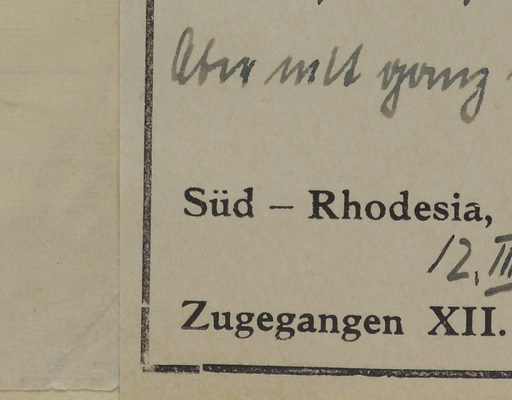 Aber mit ganz
Süd – Rhodesia,
12. III
Zugegangen XII.